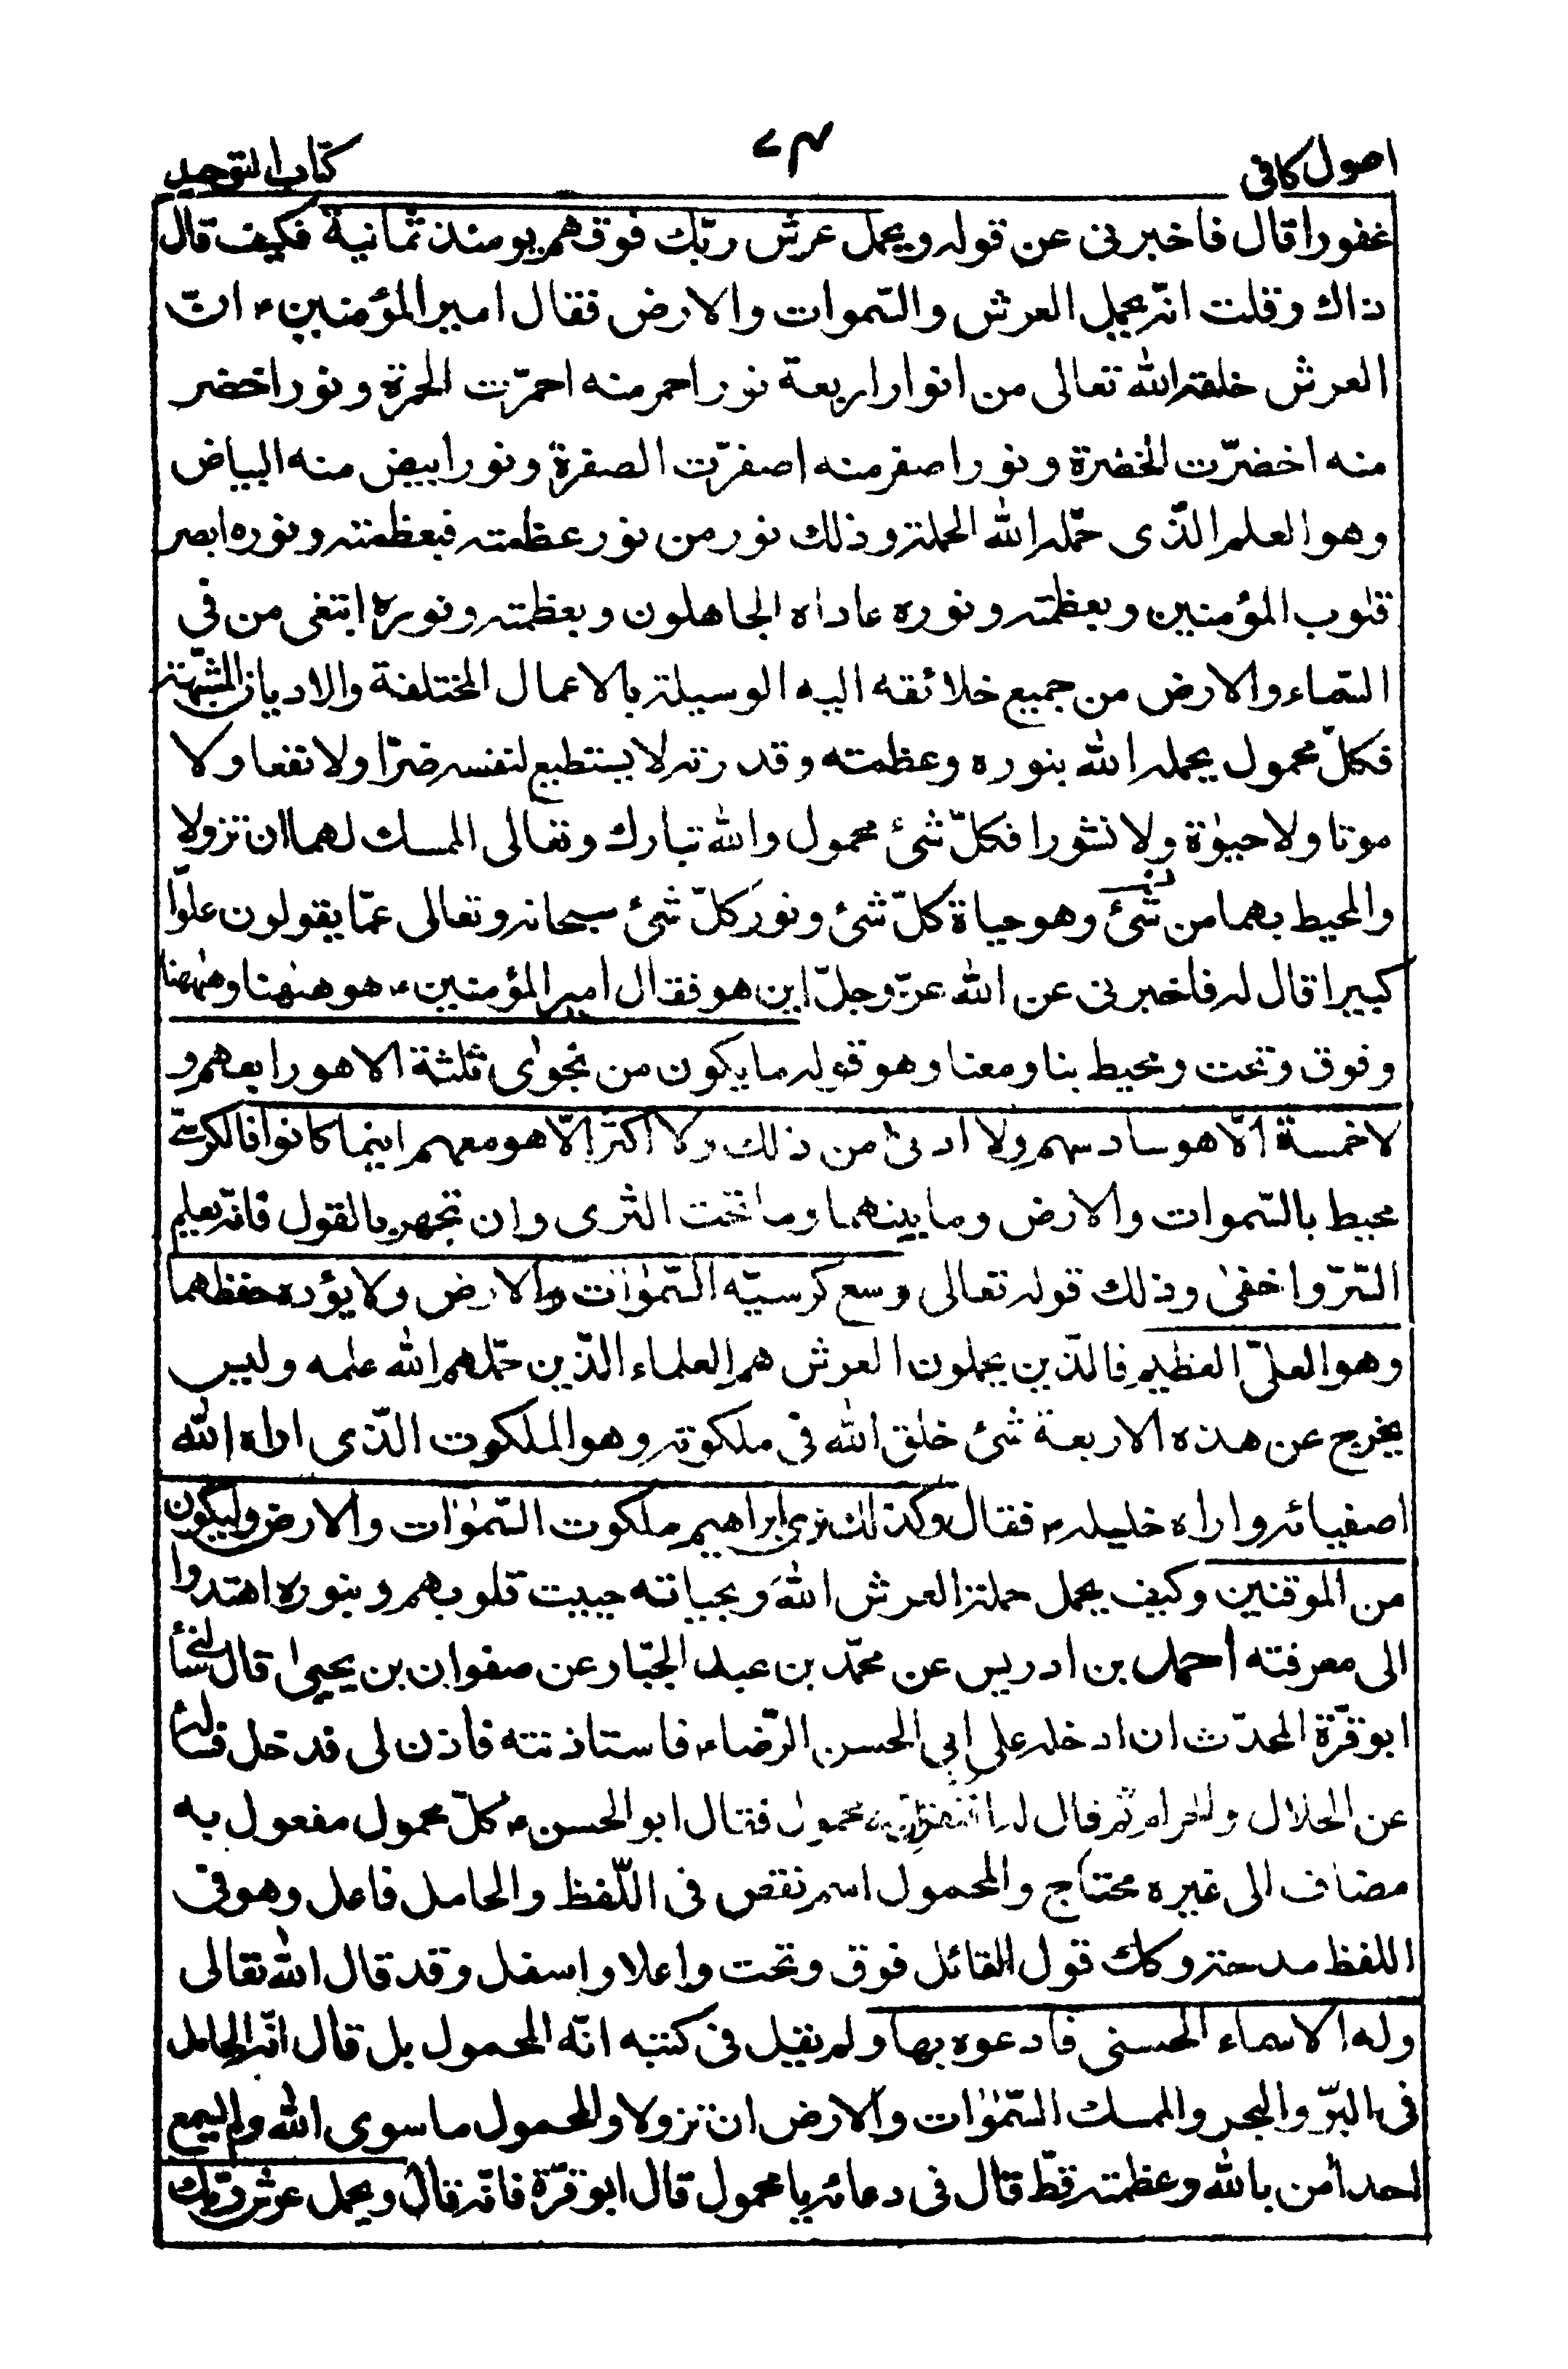 اصول كافى
٧٤
كتاب التوحيد
غفورا قال فاخبرنى عن قوله ويحمل عرش ربّك فوقهم يومئذ ثمانية فكيف قال
ذاك وقلت انّه يحمل العرش والسّموات والارض فقال امير المؤمنين ع انّ
العرش خلقه الله تعالى من انوار اربعة نور احمر منه احمرّت الحمرة ونور اخضر
منه اخضرّت الخضرة ونور اصفر منه اصفرّت الصفرة ونور ابيض منه البياض
وهو العلم الّذى حمّله الله الحملة وذلك نور من نور عظمته فبعظمته ونوره ابصر
قلوب المؤمنين وبعظمته ونوره عاداه الجاهلون وبعظمته ونوره ابتغى من فى
السّماء والارض من جميع خلائقه اليه الوسيلة بالاعمال المختلفة والاديان المشبّهة
فكلّ محمول يحمله الله بنوره وعظمته وقدرته لا يستطيع لنفسه ضرّا ولا نفعا ولا
موتا ولا حيوٰة ولا نشورا فكلّ شئ محمول والله تبارك وتعالى الممسك لهما ان تزولا
والمحيط بهما من شئ وهو حياة كلّ شئ ونور كلّ شئ سبحانه وتعالى عمّا يقولون علوّا
كبيرا قال له فاخبرنى عن الله عزّ وجلّ اين هو فقال امير المؤمنين ع هو هٰهنا وهٰهنا
وفوق وتحت ومحيط بنا ومعنا وهو قوله ما يكون من نجوٰى ثلثة الا هو رابعهم و
لا خمسة الّا هو سادسهم ولا ادنىٰ من ذلك ولا اكثر الّا هو معهم اينما كانوا فالكرسىّ
محيط بالسّموات والارض وما بينهما وما تحت الثرى وان تجهر بالقول فانّه يعلم
السّرّ واخفىٰ وذلك قوله تعالى وسع كرسيّه السّمٰوٰات والارض ولا يؤده حفظهما
وهو العلىّ العظيم فالّذين يحملون العرش هم العلماء الّذين حمّلهم الله علمه وليس
يخرج عن هذه الاربعة شئ خلق الله فى ملكوته وهو الملكوت الّذى اراه الله
اصفيائه واراه خليله ع فقال وكذلك نرى ابراهيم ملكوت السّمٰوٰات والارض وليكون
من الموقنين وكيف يحمل حملة العرش الله وبحياته حييت قلوبهم وبنوره اهتدوا
الى معرفته احمد بن ادريس عن محمّد بن عبد الجبّار عن صفوان بن يحيىٰ قال سألنى
ابو قرّة المحدّث ان ادخله على ابى الحسن الرّضا ع فاستاذنته فاذن لى فدخل فسأله
عن الحلال والحرام ثم قال له محمول فقال ابو الحسن ع كلّ محمول مفعول به
مضاف الى غيره محتاج والمحمول اسم نقص فى اللّفظ والحامل فاعل وهو فى
اللفظ مدحة وكك قول القائل فوق وتحت واعلا واسفل وقد قال الله تعالى
وله الاسماء الحسنى فادعوه بها ولم يقل فى كتبه انّه المحمول بل قال انّه الحامل
فى البرّ والبحر والممسك السّمٰوٰات والارض ان تزولا والمحمول ما سوى الله ولم يسمع
احد اٰمن بالله وعظمته قطّ قال فى دعائه يا محمول قال ابو قرّة فانّه قال ويحمل عرش ربّك